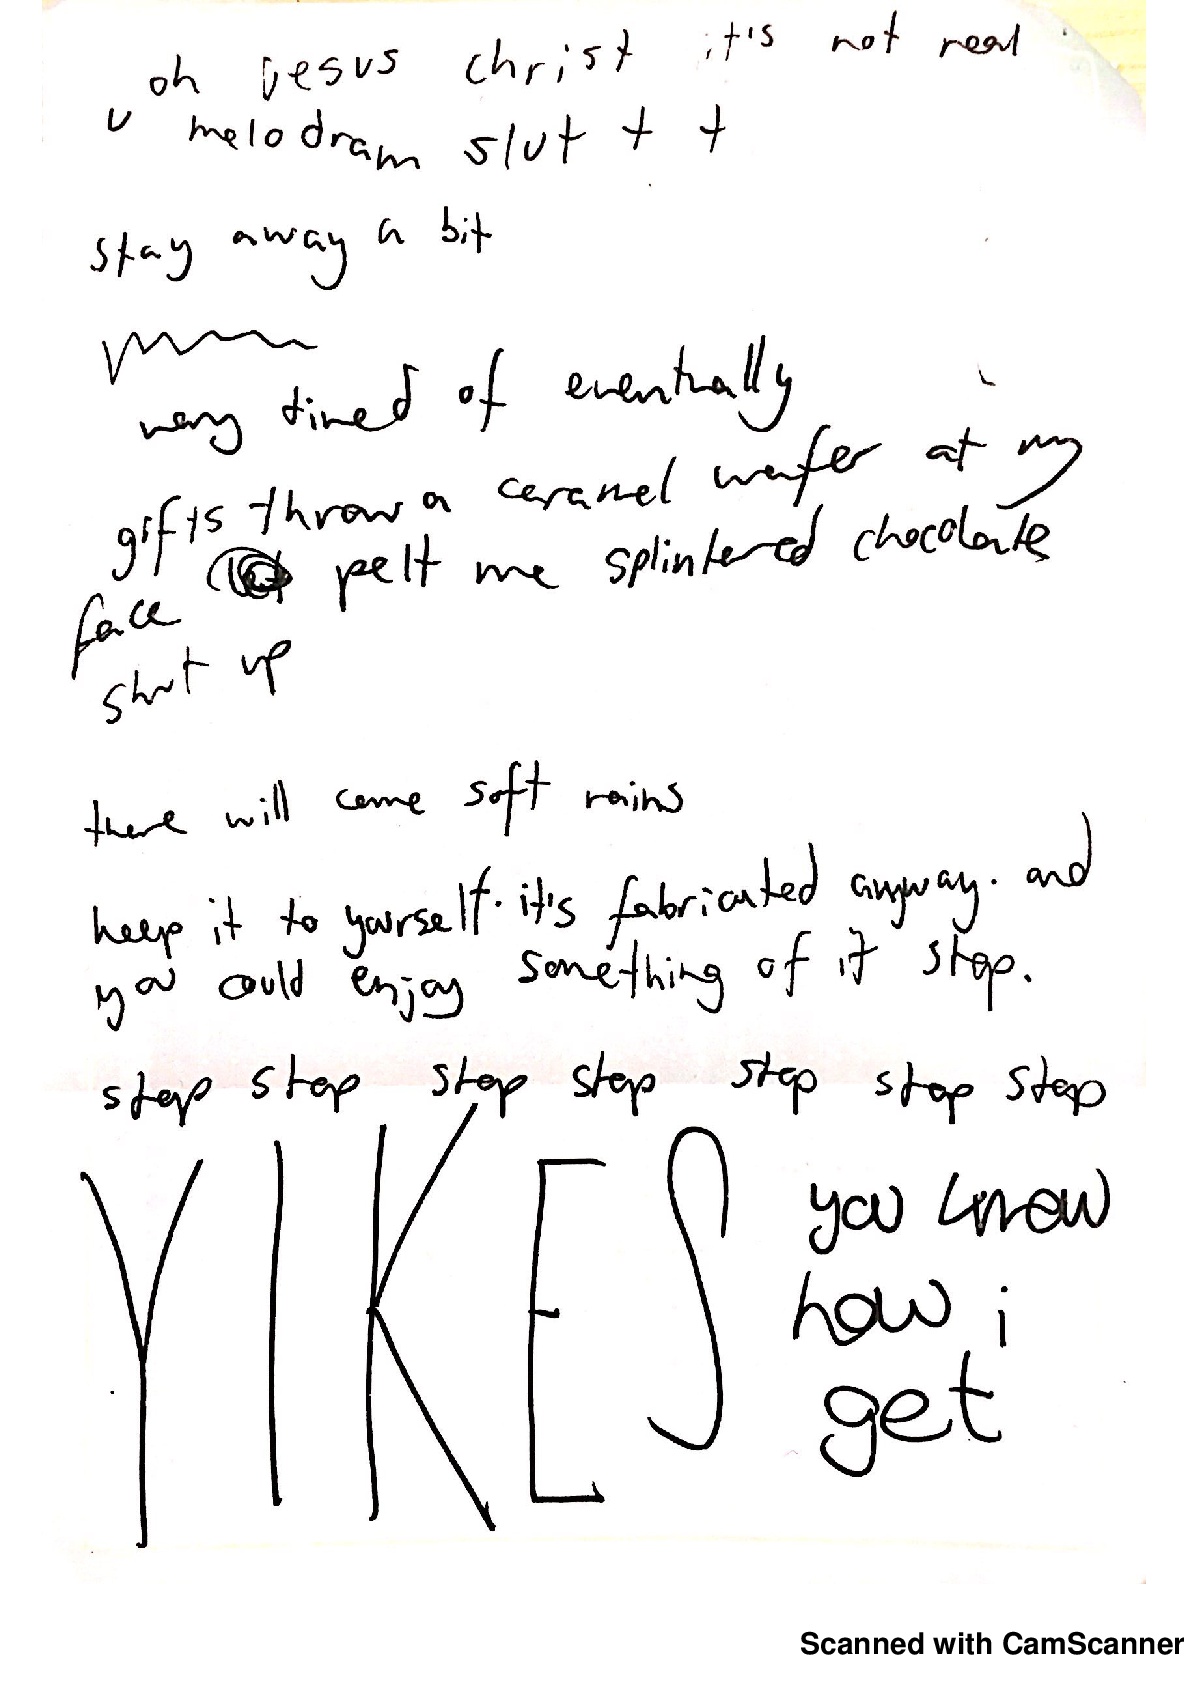 oh jesus christ it's not real
u melodram slut + +
stay away a bit
very tired of eventually
gifts throw a caramel wafer at my
face pelt me splintered chocolate
shut up
there will come soft rains
keep it to yourself. it's fabricated anyway. and
you could enjoy something of it stop.
stop stop stop stop stop stop stop
YIKES you know
how i
get
Scanned with CamScanner